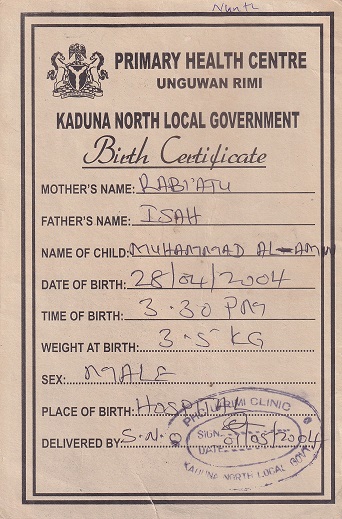 PRIMARY HEALTH CENTRE
UNGUWAN RIMI
KADUNA NORTH LOCAL GOVERNMENT
Birth Certificate
MOTHER'S NAME: RABI'ATU
FATHER'S NAME: ISAH
NAME OF CHILD: MUHAMMAD AL-AMIN
DATE OF BIRTH: 28/04/2004
TIME OF BIRTH: 3.30 PM
WEIGHT AT BIRTH: 3.5 KG
SEX: MALE
PLACE OF BIRTH: HOSPITAL
DELIVERED BY: S.N.O
RIMI CLINIC
SIGN.
DATE 01/05/2004
KADUNA NORTH LOCAL GOVT